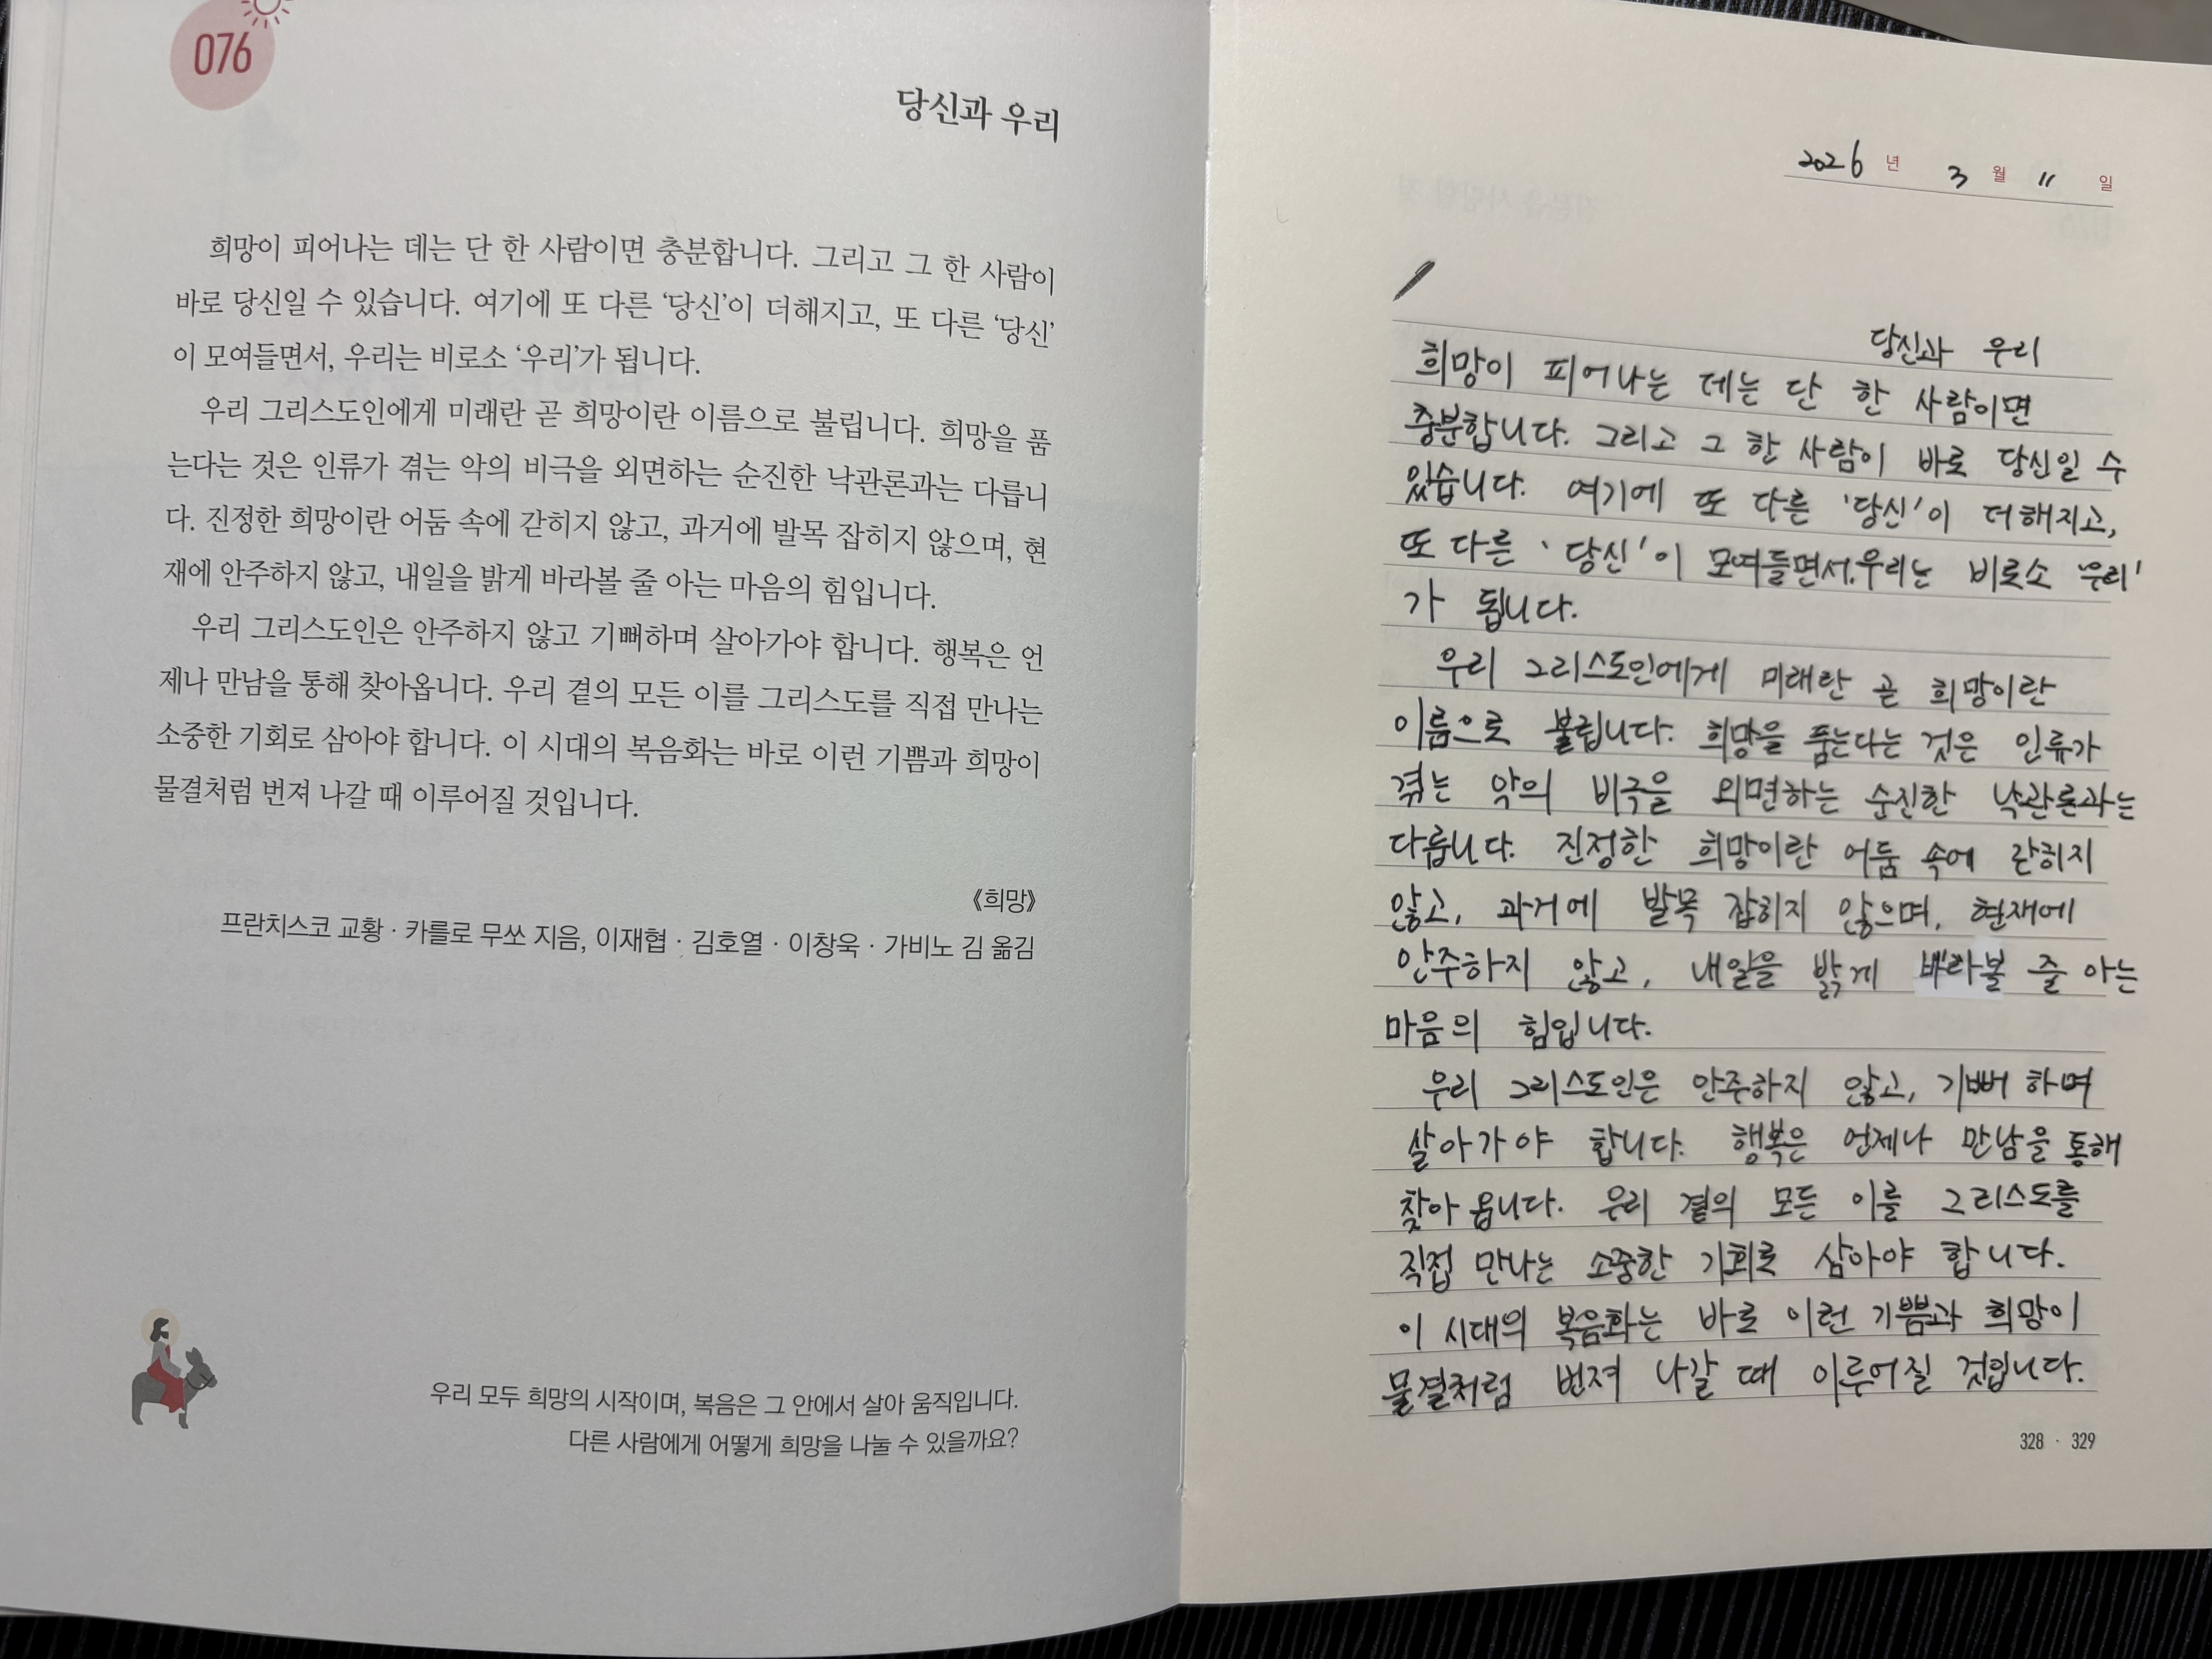 076
당신과 우리
희망이 피어나는 데는 단 한 사람이면 충분합니다. 그리고 그 한 사람이
바로 당신일 수 있습니다. 여기에 또 다른 ‘당신’이 더해지고, 또 다른 ‘당신’
이 모여들면서, 우리는 비로소 ‘우리’가 됩니다.
우리 그리스도인에게 미래란 곧 희망이란 이름으로 불립니다. 희망을 품
는다는 것은 인류가 겪는 악의 비극을 외면하는 순진한 낙관론과는 다릅니
다. 진정한 희망이란 어둠 속에 갇히지 않고, 과거에 발목 잡히지 않으며, 현
재에 안주하지 않고, 내일을 밝게 바라볼 줄 아는 마음의 힘입니다.
우리 그리스도인은 안주하지 않고 기뻐하며 살아가야 합니다. 행복은 언
제나 만남을 통해 찾아옵니다. 우리 곁의 모든 이를 그리스도를 직접 만나는
소중한 기회로 삼아야 합니다. 이 시대의 복음화는 바로 이런 기쁨과 희망이
물결처럼 번져 나갈 때 이루어질 것입니다.
《희망》
프란치스코 교황 · 카를로 무쏘 지음, 이재협 · 김호열 · 이창욱 · 가비노 김 옮김
우리 모두 희망의 시작이며, 복음은 그 안에서 살아 움직입니다.
다른 사람에게 어떻게 희망을 나눌 수 있을까요?
2026 년 3 월 11 일
당신과 우리
희망이 피어나는 데는 단 한 사람이면
충분합니다. 그리고 그 한 사람이 바로 당신일 수
있습니다. 여기에 또 다른 '당신'이 더해지고,
또 다른 '당신'이 모여들면서.우리는 비로소 '우리'
가 됩니다.
우리 그리스도인에게 미래란 곧 희망이란
이름으로 불립니다. 희망을 품는다는 것은 인류가
겪는 악의 비극을 외면하는 순진한 낙관론과는
다릅니다. 진정한 희망이란 어둠 속에 갇히지
않고, 과거에 발목 잡히지 않으며, 현재에
안주하지 않고, 내일을 밝게 바라볼 줄 아는
마음의 힘입니다.
우리 그리스도인은 안주하지 않고, 기뻐 하며
살아가야 합니다. 행복은 언제나 만남을 통해
찾아 옵니다. 우리 곁의 모든 이를 그리스도를
직접 만나는 소중한 기회로 삼아야 합니다.
이 시대의 복음화는 바로 이런 기쁨과 희망이
물결처럼 번져 나갈 때 이루어질 것입니다.
328 · 329